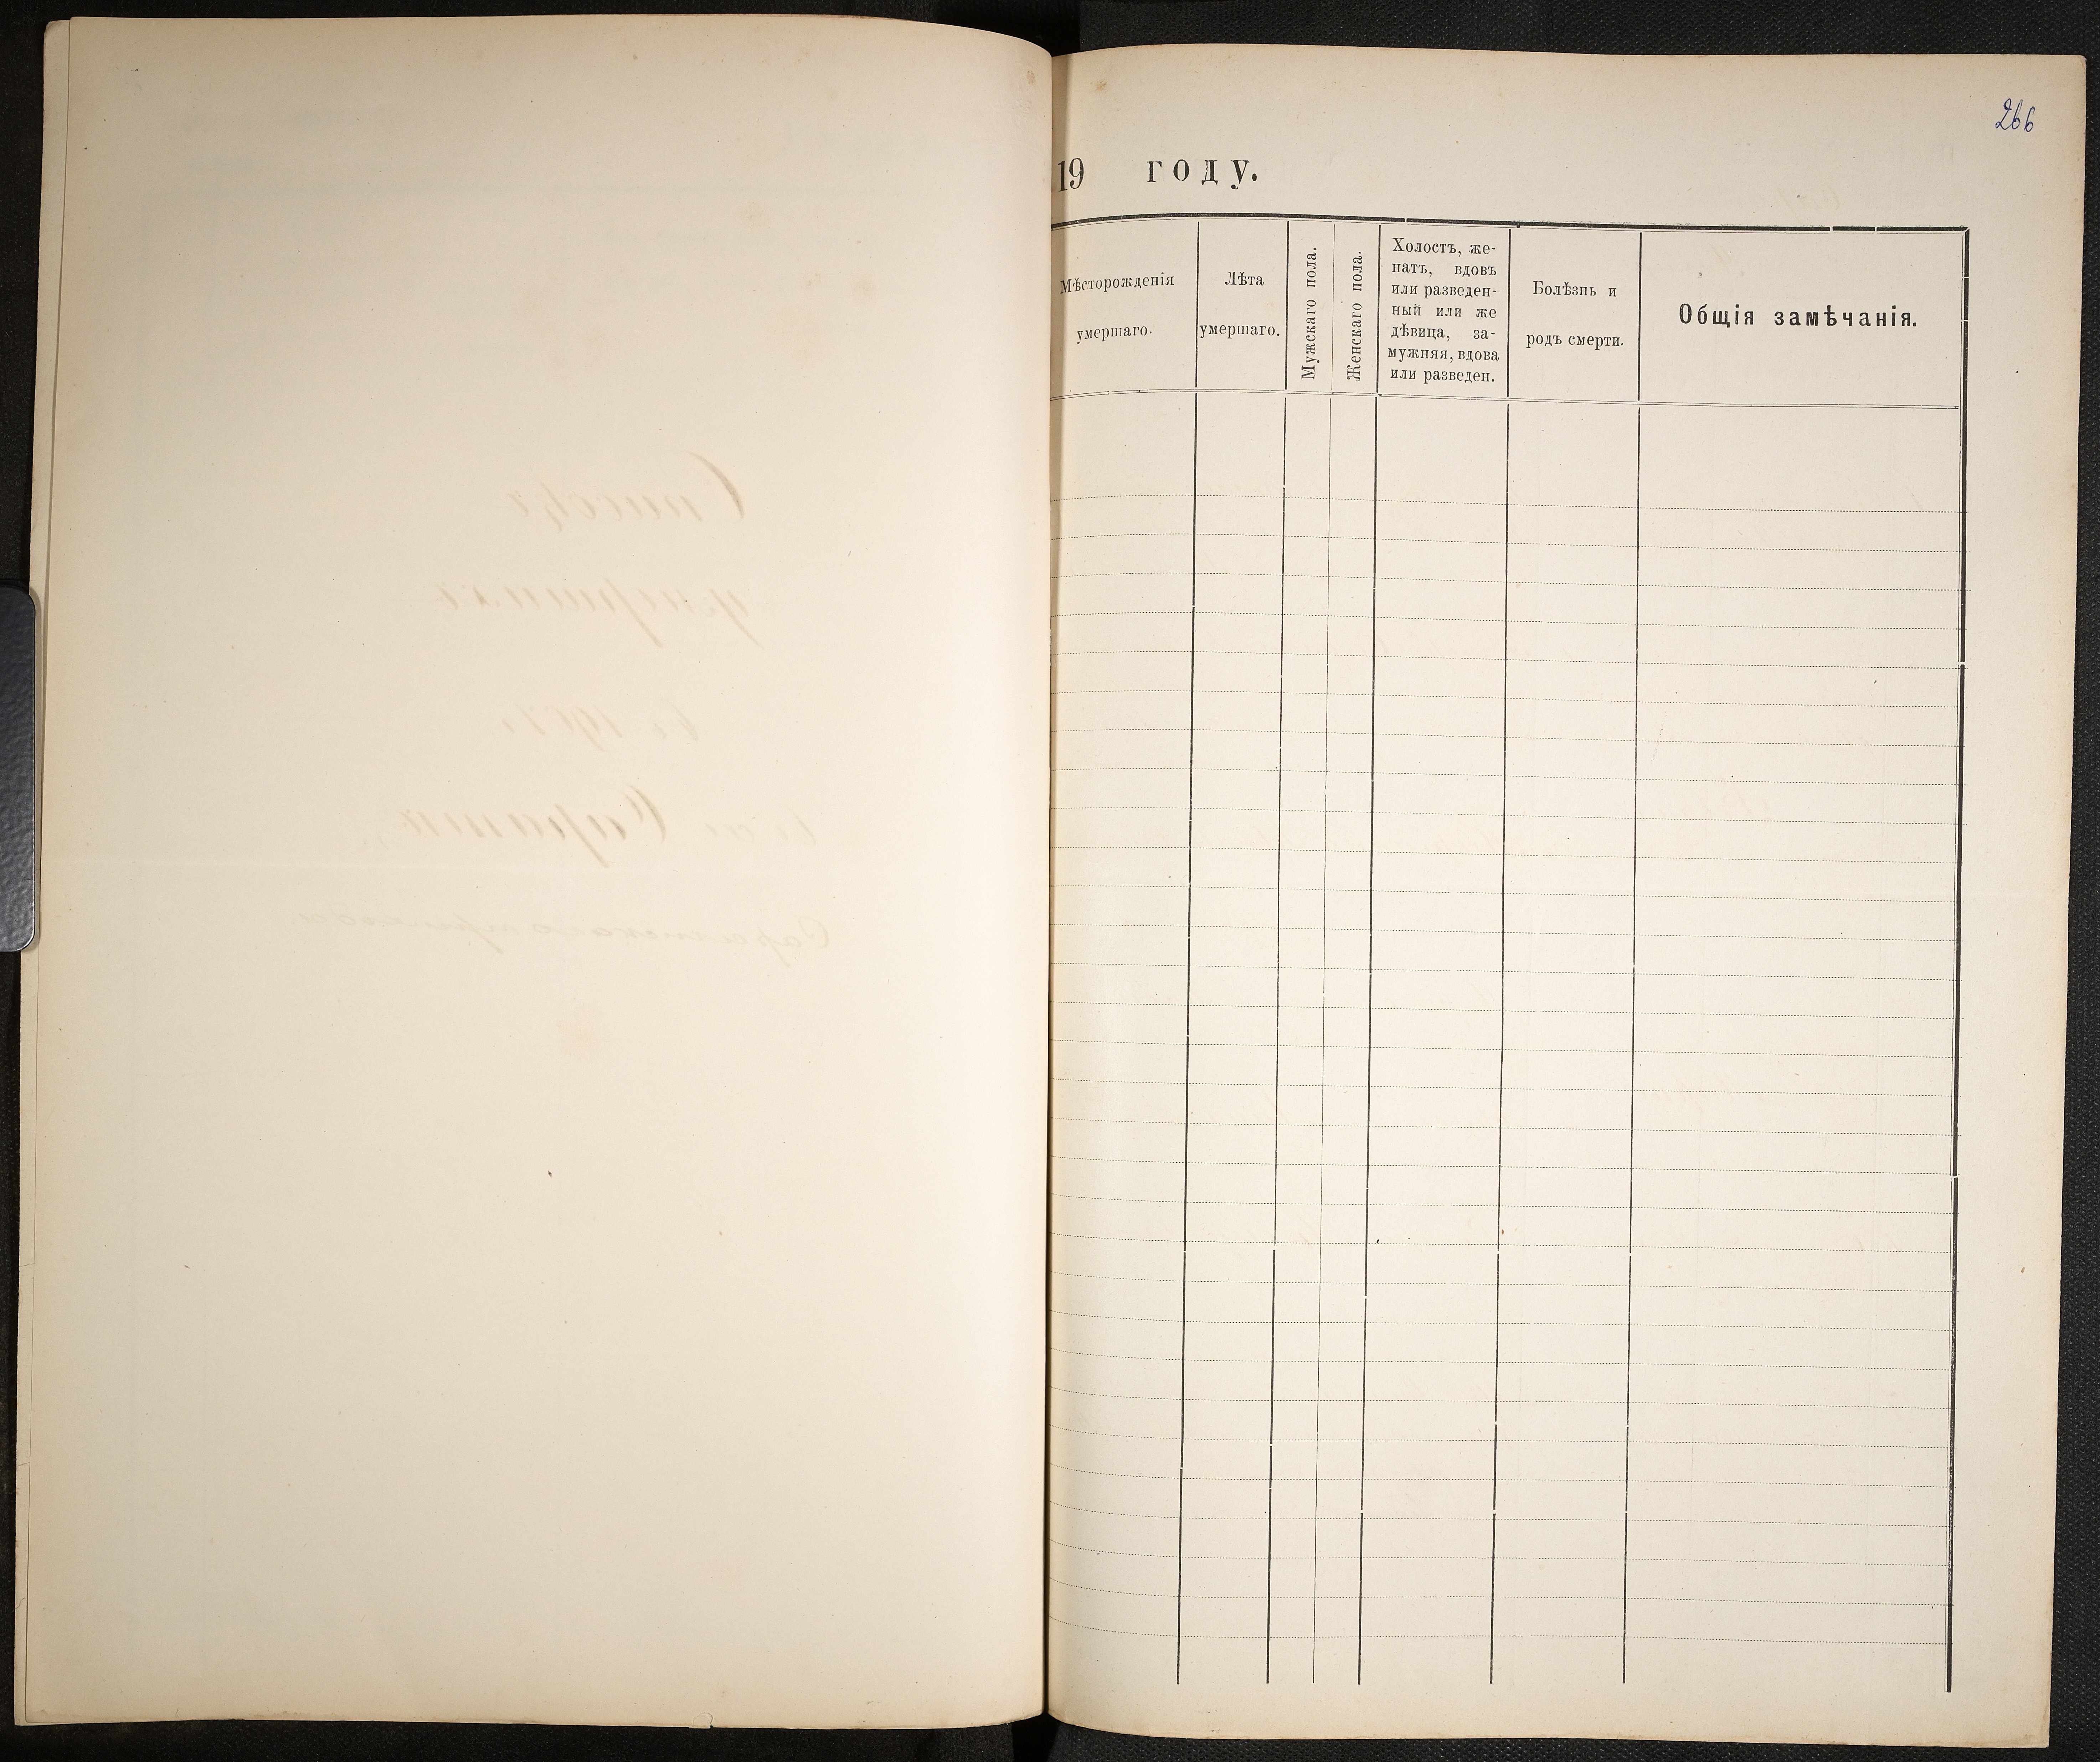 266
19 году.
Мѣсторожденія
умершаго.
Лѣта
умершаго.
Мужскаго пола.
Женскаго пола.
Холостъ, же-
натъ, вдовъ
или разведен-
ный или же
дѣвица, за-
мужняя, вдова
или разведен.
Болѣзнь и
родъ смерти.
Общія замѣчанія.